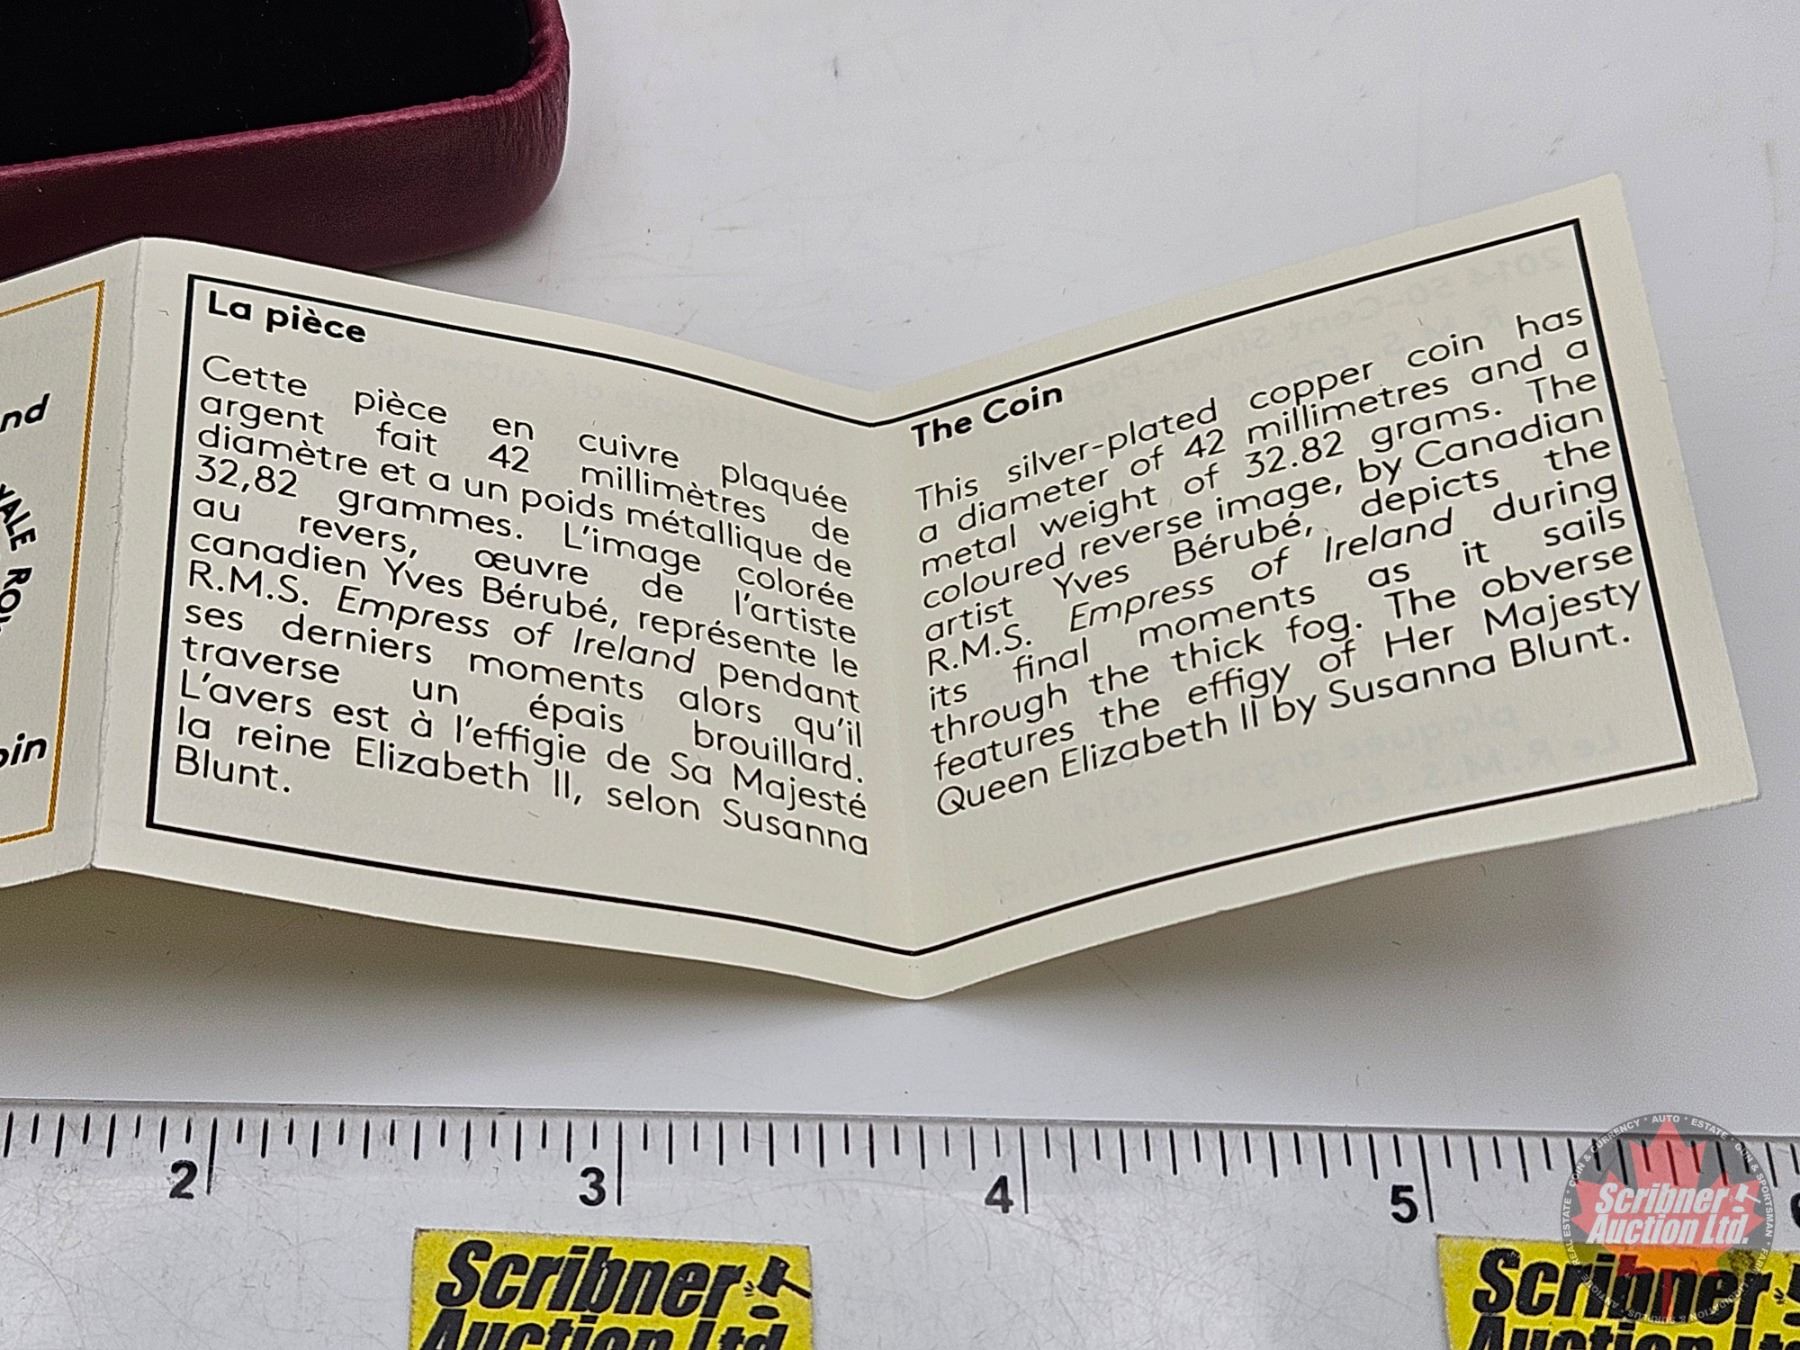 nd
VALE RO
oin
La pièce
Cette pièce en cuivre plaquée
argent fait 42 millimètres de
diamètre et a un poids métallique de
32,82 grammes. L'image colorée
au revers, œuvre de l'artiste
canadien Yves Bérubé, représente le
R.M.S. Empress of Ireland pendant
ses derniers moments alors qu'il
traverse un épais brouillard.
L'avers est à l'effigie de Sa Majesté
la reine Elizabeth II, selon Susanna
Blunt.
The Coin
This silver-plated copper coin has
a diameter of 42 millimetres and a
metal weight of 32.82 grams. The
coloured reverse image, by Canadian
artist Yves Bérubé, depicts the
R.M.S. Empress of Ireland during
its final moments as it sails
through the thick fog. The obverse
features the effigy of Her Majesty
Queen Elizabeth II by Susanna Blunt.
2 3 4 5
Scribner
Auction Ltd.
Scribner
Auction Ltd
Scribner
Auction Ltd.
COIN & CURRENCY • AUTO • ESTATE • GUN & SPORTSMAN
REAL ESTATE